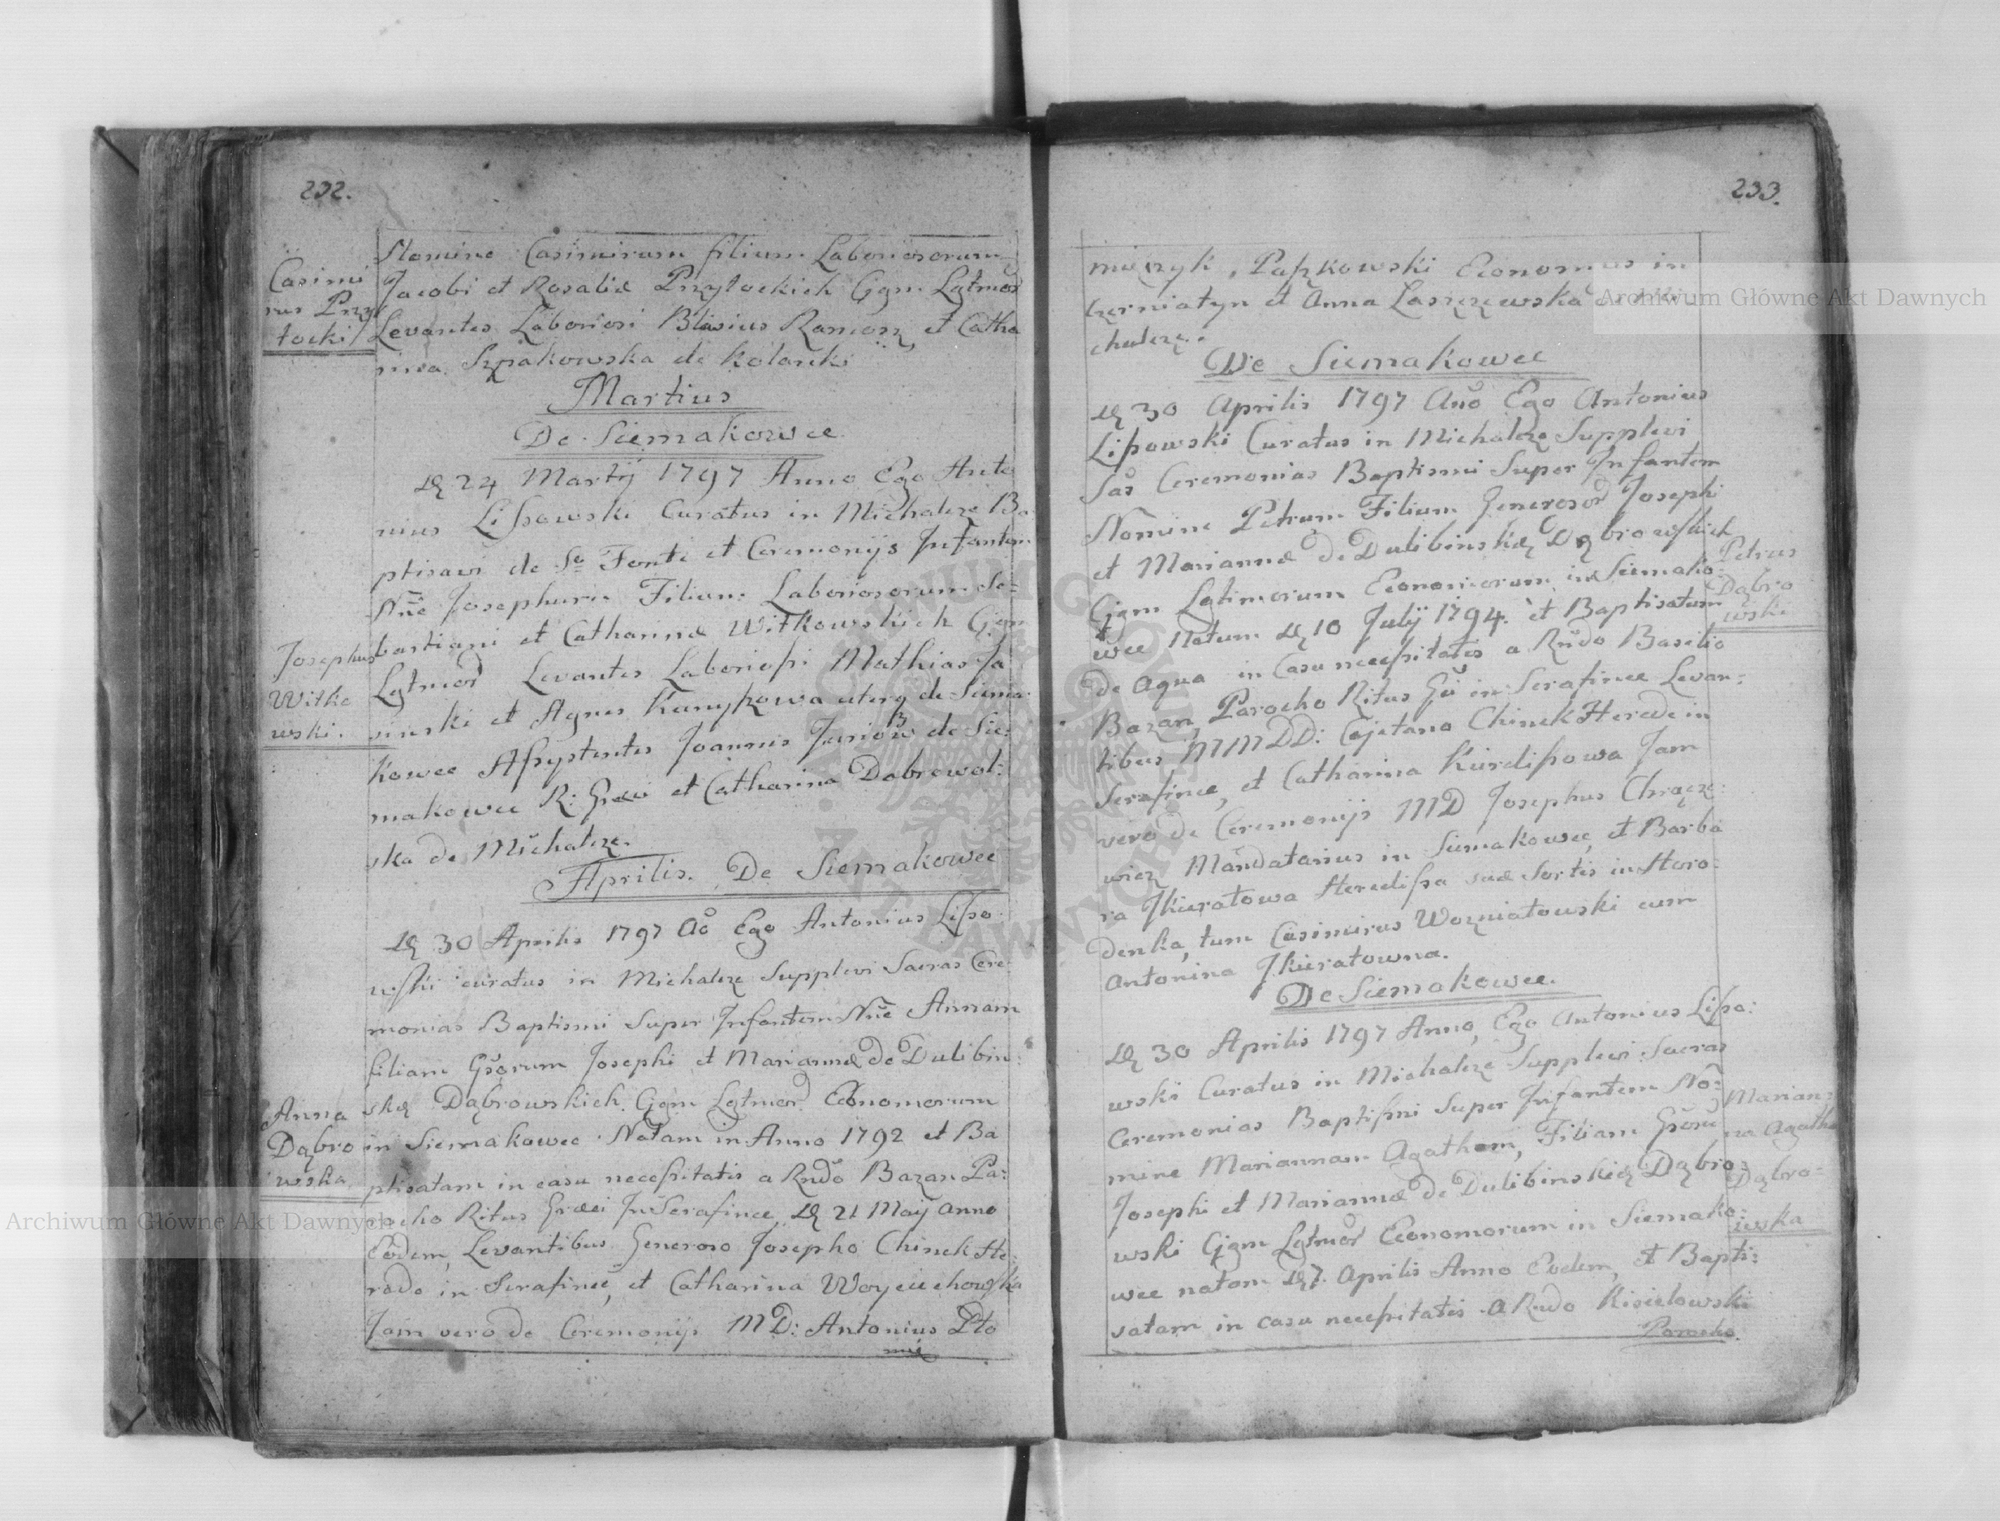 232.
Nomine Casimirum filium Laboriosorum
Jacobi et Rosaliæ Przytockich Cjgm Lgtmor̃
Levantes Laboriosi Blasius et Catha
rina Szpakowska de Kolanki
Casimi
rus Przy
tocki
Martius
De Siemakowce
24 Martij 1797 Anno Ego Anto
nius Lissowski Curatus in Michalcze Ba
ptisavi de So Fonte et Ceremonijs Infantem
Nñe Josephum Filium Laboriosorum Se=
bastiani et Catharinæ Witkowskich Cjgm
Lgtmor̃ Levantes Laboriossi Mathias Ja
sinski et Agnes uterq de Siema
kowce Assystentes Joannis de Sie:
makowce R: Græci et Catharina Dabrowol:
ska de Michalcze.
Josephus
Witko
wski.
Aprilis. De Siemakowce
30 Aprilis 1797 Ao Ego Antonius Lisso
wski curatus in Michalcze Supplevi Sacras Cere
monias Baptismi Super Infantem Nñe Annam
filiam Gsorum Josephi et Mariannæ de Dulibin:
skię Dąbrowskich Cjgm Lgtmor̃ Economorum
in Siemakowce Natam in Anno 1792 et Ba
ptisatam in casu necessitatis a Rndo Bazan Pa:
rocho Ritus Græci In Serafince 21 Maij Anno
Eodem, Levantibus Generoso Josepho Chinek He:
rede in Serafince, et Catharina Woyciechowska
Jam vero de Ceremonijs MD: Antonius Pto
mie
Anna
Dąbro
wska
233.
mięzyk, Paszkowski Economus in
Czerniatyn et Anna Laszczewska de Mi
chalcze.
De Siemakowce
30 Aprilis 1797 Ano Ego Antonius
Lissowski Curatus in Michalcze Supplevi
Sas Ceremonias Baptismi Super Infantem
Nomine Petrum Filium Generosor̃ Josephi
et Mariannæ de Dulibinskię Dąbrowskich
Cjgm Lgtimorum Economorum in Siemako:
wce Natum 10 Julij 1794. et Baptisatum
de Aqua in Casu necessitatis a Rndo Basilio
Bazan, Parocho Ritus Gci in Serafince Levan:
tibus MMDD: Cajetano Chinek Herede in
Serafince, et Catharina Kurdissowa Jam
vero de Ceremonijs MD Josephus Chrącze:
wicz Mandatarius in Siemakowce, et Barba
ra Skuratowa Heredissa suæ Sortis in Horo:
denka, tum Casimirus Wozniatowski cum
Antonina Skuratowna.
Petrus
Dąbro
wski
De Siemakowce.
30 Aprilis 1797 Anno, Ego Antonius Lisso:
wski Curatus in Michalcze Supplevi Sacras
Ceremonias Baptissmi Super Infantem No:
mine Mariannam Agatham, Filiam Gsoru
Josephi et Mariannæ de Dulibinskię Dąbro:
wski Cjgm Lgtmor̃ Economorum in Siemako:
wce natam 7 Aprilis Anno Eodem, et Bapti:
satam in casu necessitatis a Rndo Kisielowski
Parocho.
Marian:
na Agatha
Dąbro:
wska
Archiwum Główne Akt Dawnych
Archiwum Główne Akt Dawnych
ARCHIWUM GŁÓWNE AKT DAWNYCH